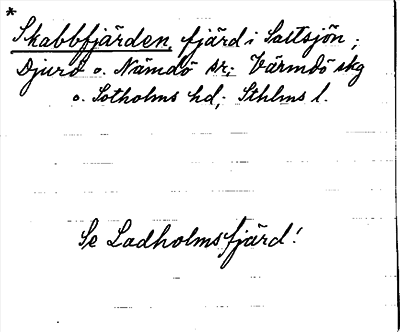 *
Skabbfjärden, fjärd i Saltsjön;
Djurö o. Nämdö sr; Värmdö skg
o. Sotholms hd; Sthlms l.
Se Ladholmsfjärd!